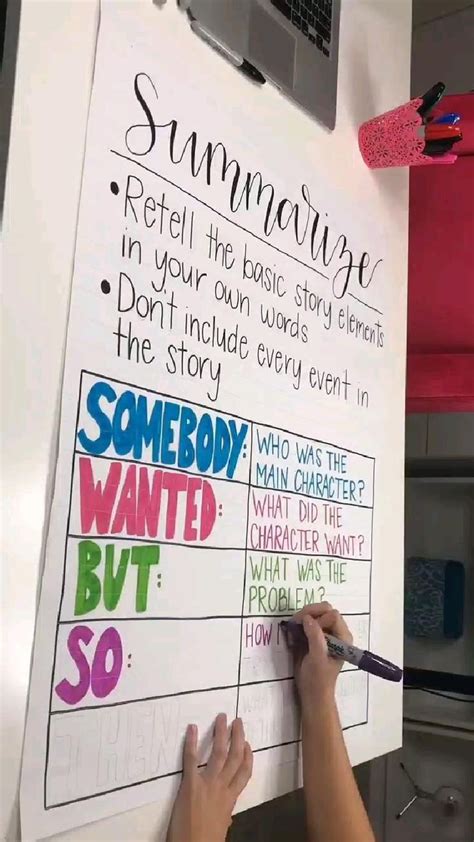 Summarize
•Retell the basic story elements
in your own words
•Dont include every event in
the story
SOMEBODY: WHO WAS THE
MAIN CHARACTER?
WANTED: WHAT DID THE
CHARACTER WANT?
BUT: WHAT WAS THE
PROBLEM?
SO: HOW
THEN